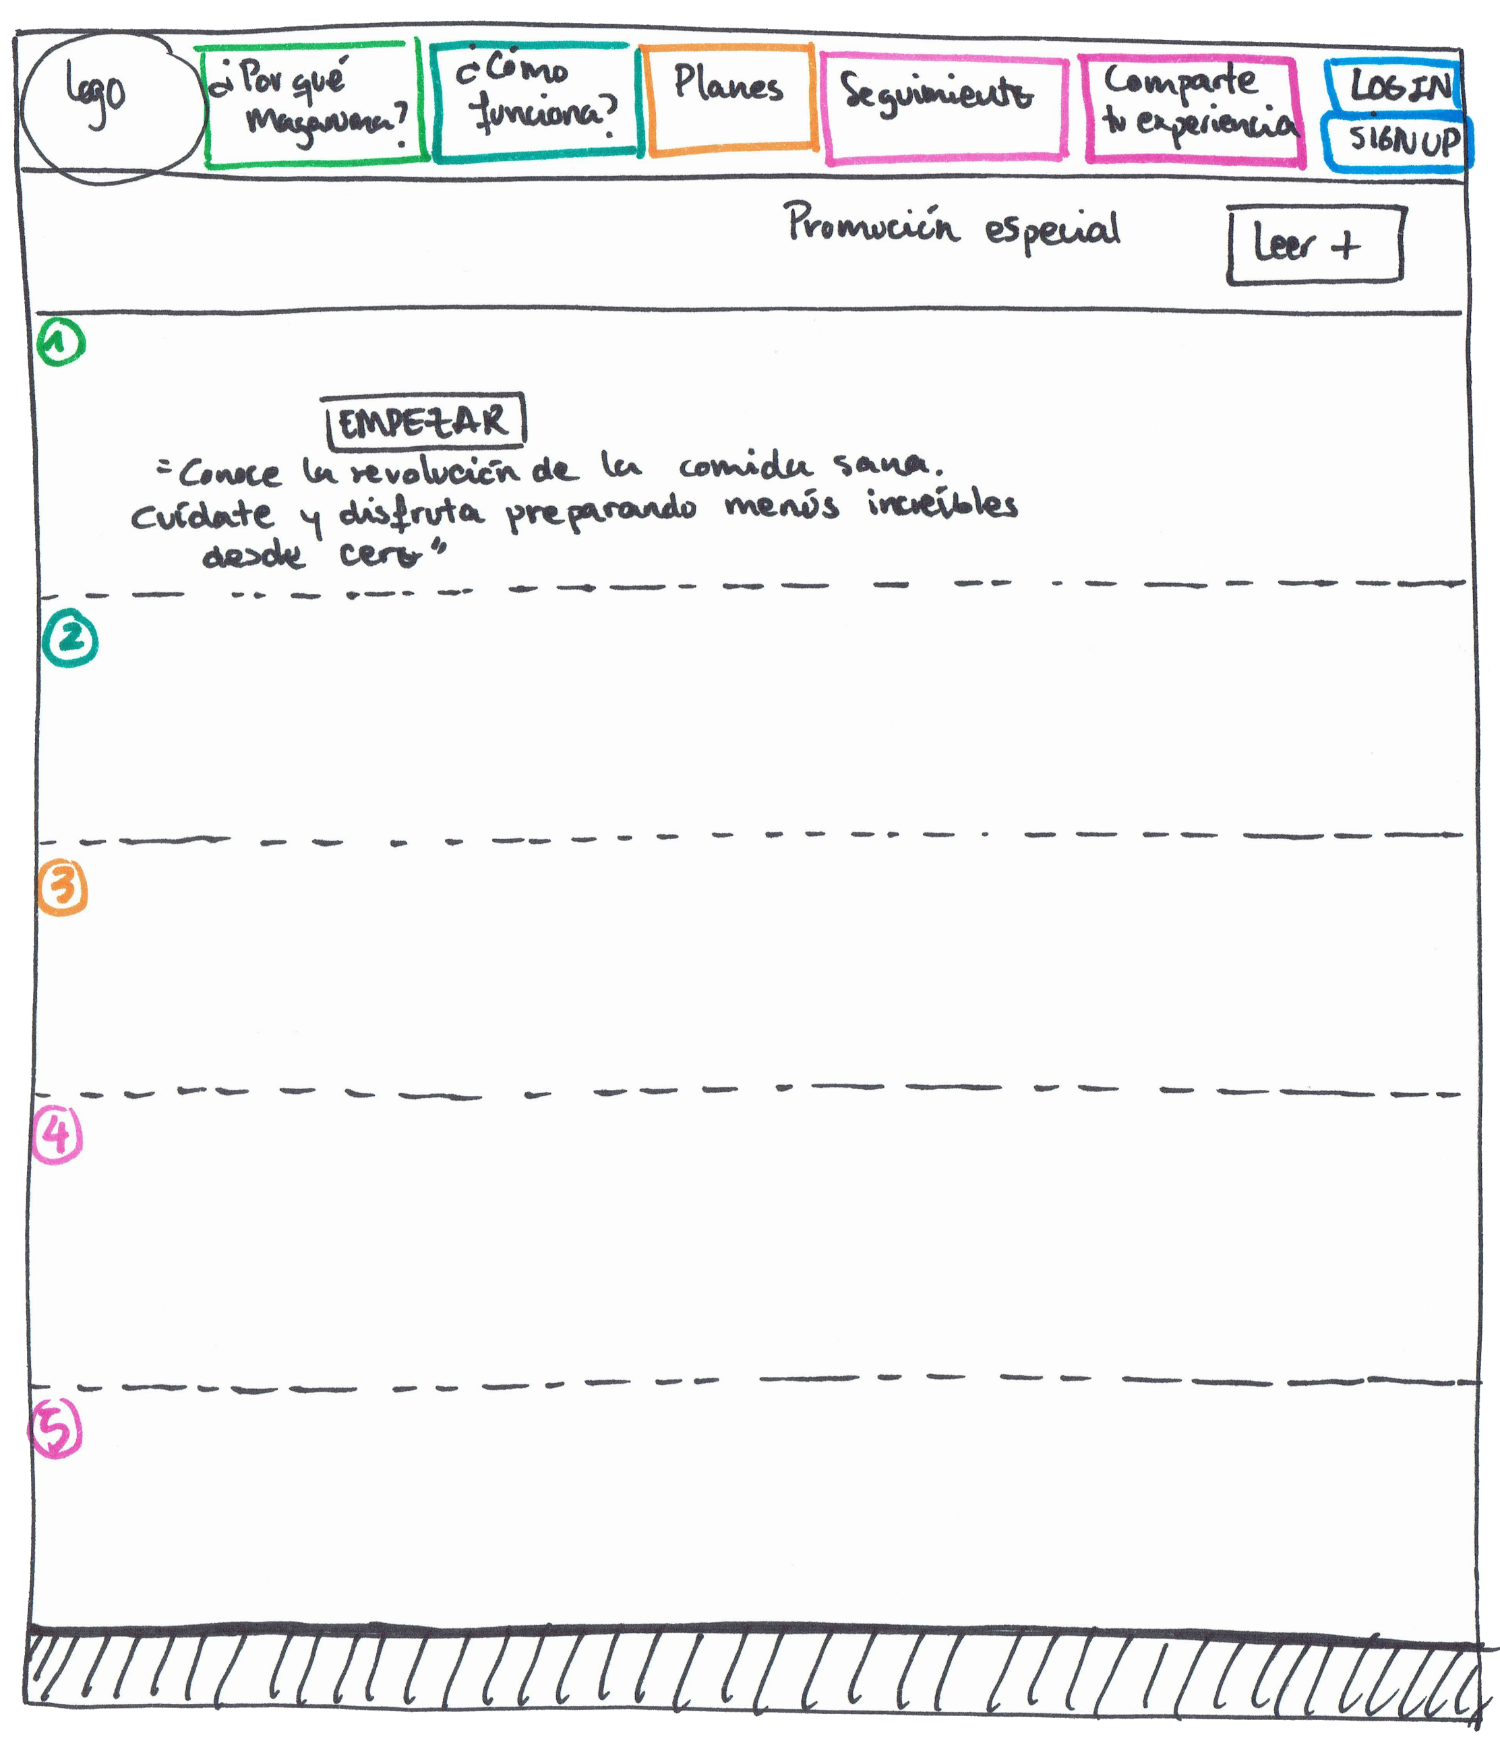 Logo
¿Por qué
Maganuma?
¿Cómo
funciona?
Planes
Seguimiento
Comparte
tu experiencia
LOGIN
SIGN UP
Promoción especial
Leer +
1
EMPEZAR
"Conoce la revolución de la comida sana.
Cuídate y disfruta preparando menús increíbles
desde cero"
2
3
4
5